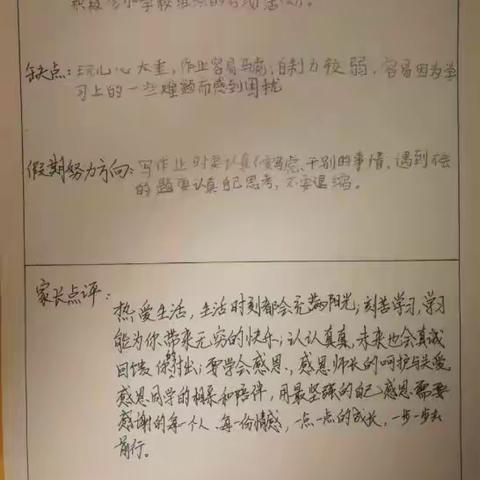 积极参加学校组织的各项活动。
缺点：玩心太重，作业容易马虎，自制力较弱，容易因为学
习上的一些难题而感到困扰
假期努力方向：写作业时要认真 干别的事情、遇到不会
的题要认真自己思考，不要退缩。
家长点评：
热爱生活，生活时刻都会充满阳光；刻苦学习，学习
能为你带来无穷的快乐；认认真真，未来也会真诚
回馈你的付出；要学会感恩，感恩师长的呵护与关爱
感恩同学的相亲和陪伴，用最坚强的自己感恩需要
感谢的每一个人、每一份情感，一点一点的成长，一步一步去
前行。